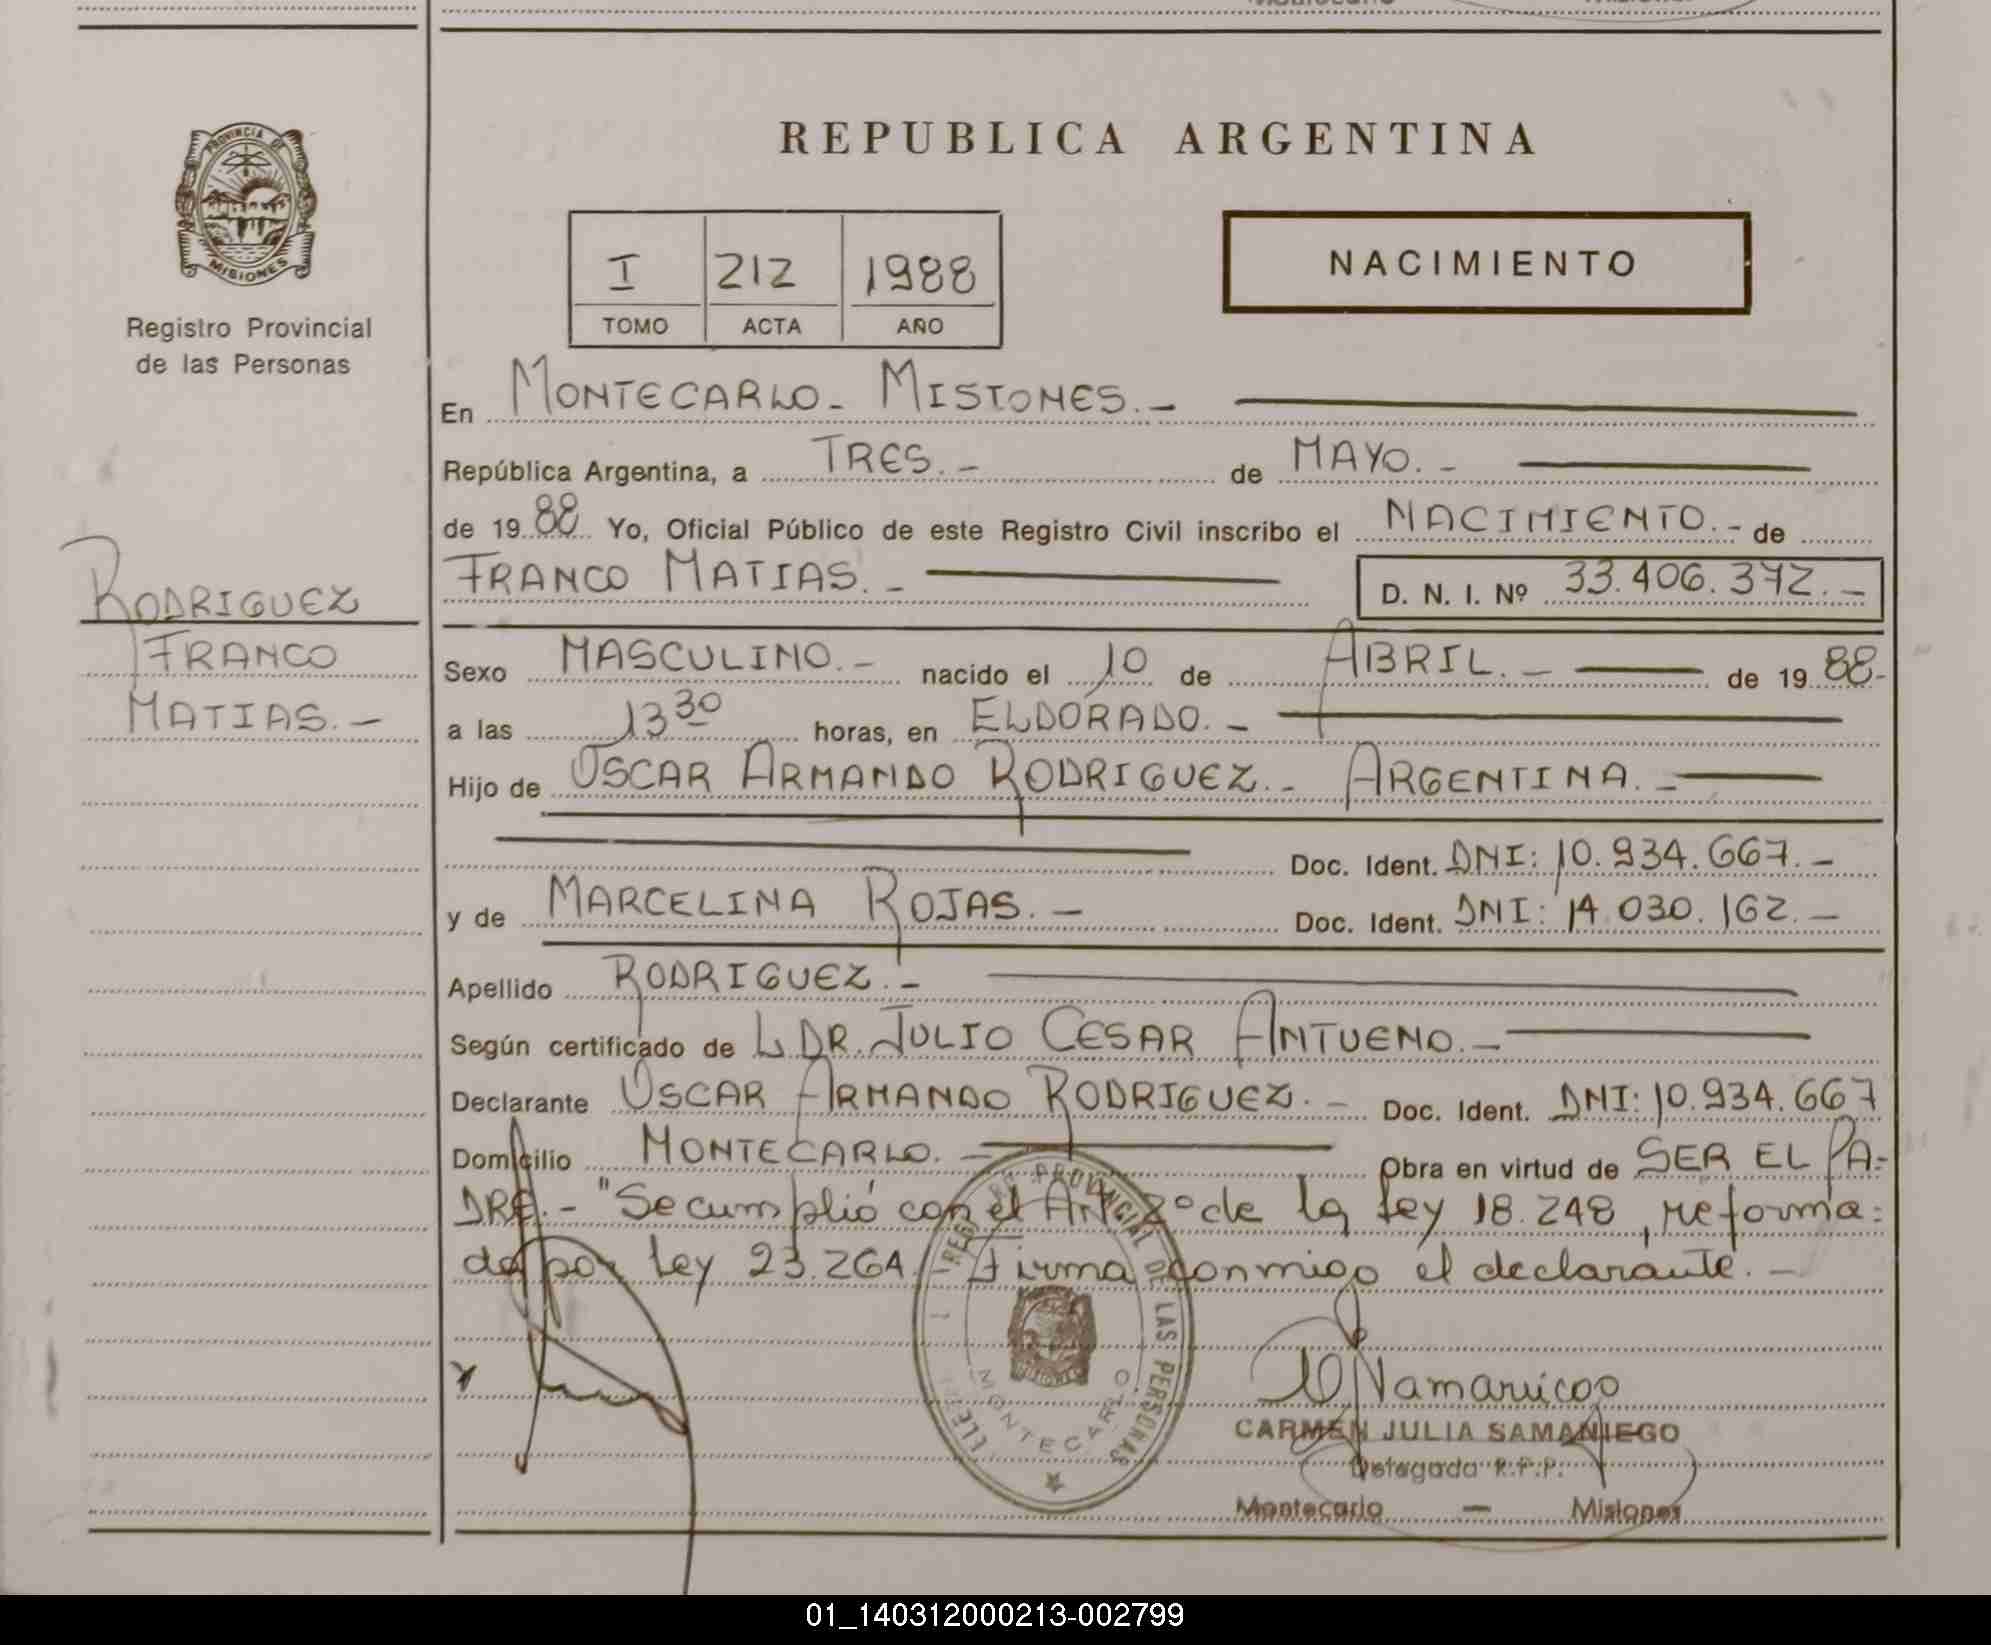 REPUBLICA ARGENTINA
PROVINCIA DE
MISIONES
Registro Provincial
de las Personas
I 212 1988
TOMO ACTA AÑO
NACIMIENTO
RODRIGUEZ
FRANCO
MATIAS.-
En MONTECARLO- MISIONES.-
República Argentina, a TRES.- de MAYO.-
de 1988 Yo, Oficial Público de este Registro Civil inscribo el NACIMIENTO.- de
FRANCO MATIAS.- D. N. I. Nº 33.406.372.-
Sexo MASCULINO.- nacido el 10 de ABRIL.- de 1988-
a las 13 30 horas, en ELDORADO.-
Hijo de OSCAR ARMANDO RODRIGUEZ.- ARGENTINA.-
Doc. Ident. DNI: 10.934.667.-
y de MARCELINA ROJAS.- Doc. Ident. DNI: 14.030.162.-
Apellido RODRIGUEZ.-
Según certificado de L DR. JULIO CESAR ANTUENO.-
Declarante OSCAR ARMANDO RODRIGUEZ.- Doc. Ident. DNI: 10.934.667
Domicilio MONTECARLO.- Obra en virtud de SER EL PA-
DRE.- "Se cumplió con el Art 2º de la ley 18.248, reforma=
da por ley 23.264. Firma conmigo el declarante.-
PROVINCIAL DE LAS PERSONAS
MONTECARLO
CARMEN JULIA SAMANIEGO
Delegada R.P.P.
Montecarlo — Misiones
01_140312000213-002799